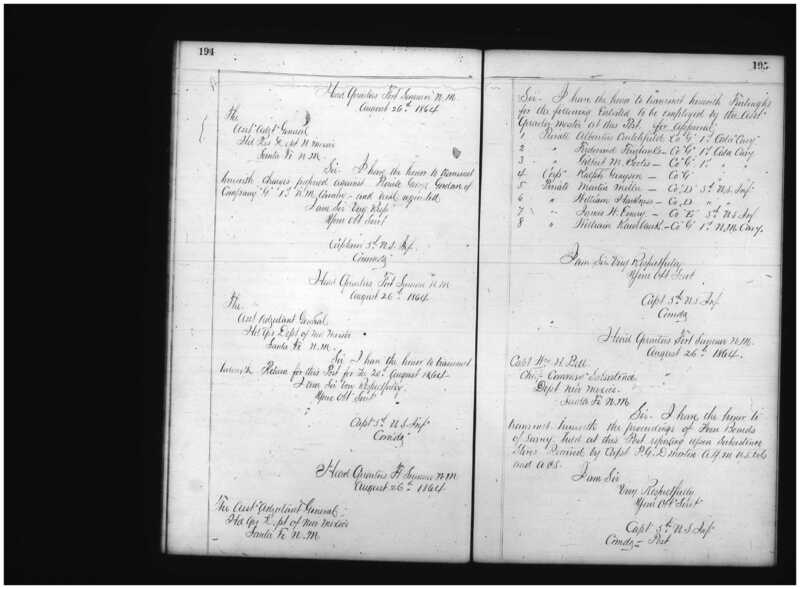 194
Head Quarters Fort Sumner N.M.
August 26th 1864
The
Asst Adjt General
Hd Qrs Dept N. Mexico
Santa Fe N.M.
Sir I have the honor to transmit
herewith charges prefered against Private George
Company "G" 1st N.M. Cavalry and
I am Sir Very Resp
Your Obt Servt
Captain 5th U.S. Inf.
Comdg
Head Quarters Fort Sumner N.M.
August 26th 1864
The
Asst Adjutant General
Hd Qrs Dept of New Mexico
Santa Fe N.M.
Sir I have the honor to transmit
herewith Return for this Post for the 20th August 1864
I am Sir Very Respectfully
Your Obt Servt
Capt 5th U.S. Inf
Comdg
Head Quarters Ft Sumner N.M.
August 26th 1864
The Asst Adjutant General
Hd Qrs Dept of New Mexico
Santa Fe N.M.
195
Sir. I have the honor to transmit herewith Furloughs
for the following Enlisted to be employed by the Asst
Quarter Master at this Post.
1 Private Co "G" 1st Cala Cavy
2 " Ferdinand Co "G" 1st Cala Cavy
3 " M. Co "G" 1st "
4 Corpl Ralph Grayson Co "G"
5 Private Martin Miller Co "D" 5th U.S. Inf
6 " William Co "D" " "
7 " James H. Co "E" 5th U.S. Inf
8 " William Co "G" 1st N.M. Cavy.
I am Sir Very Respectfully
Your Obt Servt
Capt 5th U.S. Inf
Comdg
Head Quarters Fort Sumner N.M.
August 26th 1864.
Capt Wm H. Bell
Chief Commsy Subsistence
Dept New Mexico
Santa Fe N.M.
Sir. I have the honor to
transmit herewith the proceedings of Four Boards
of Survey held at this Post reporting upon Subsistence
Stores Received by Capt P.G.D. Morton A.Q.M. U.S. Vols
and A.C.S.
I am Sir
Very Respectfully
Your Obt Servt
Capt 5th U.S. Inf
Comdg Post